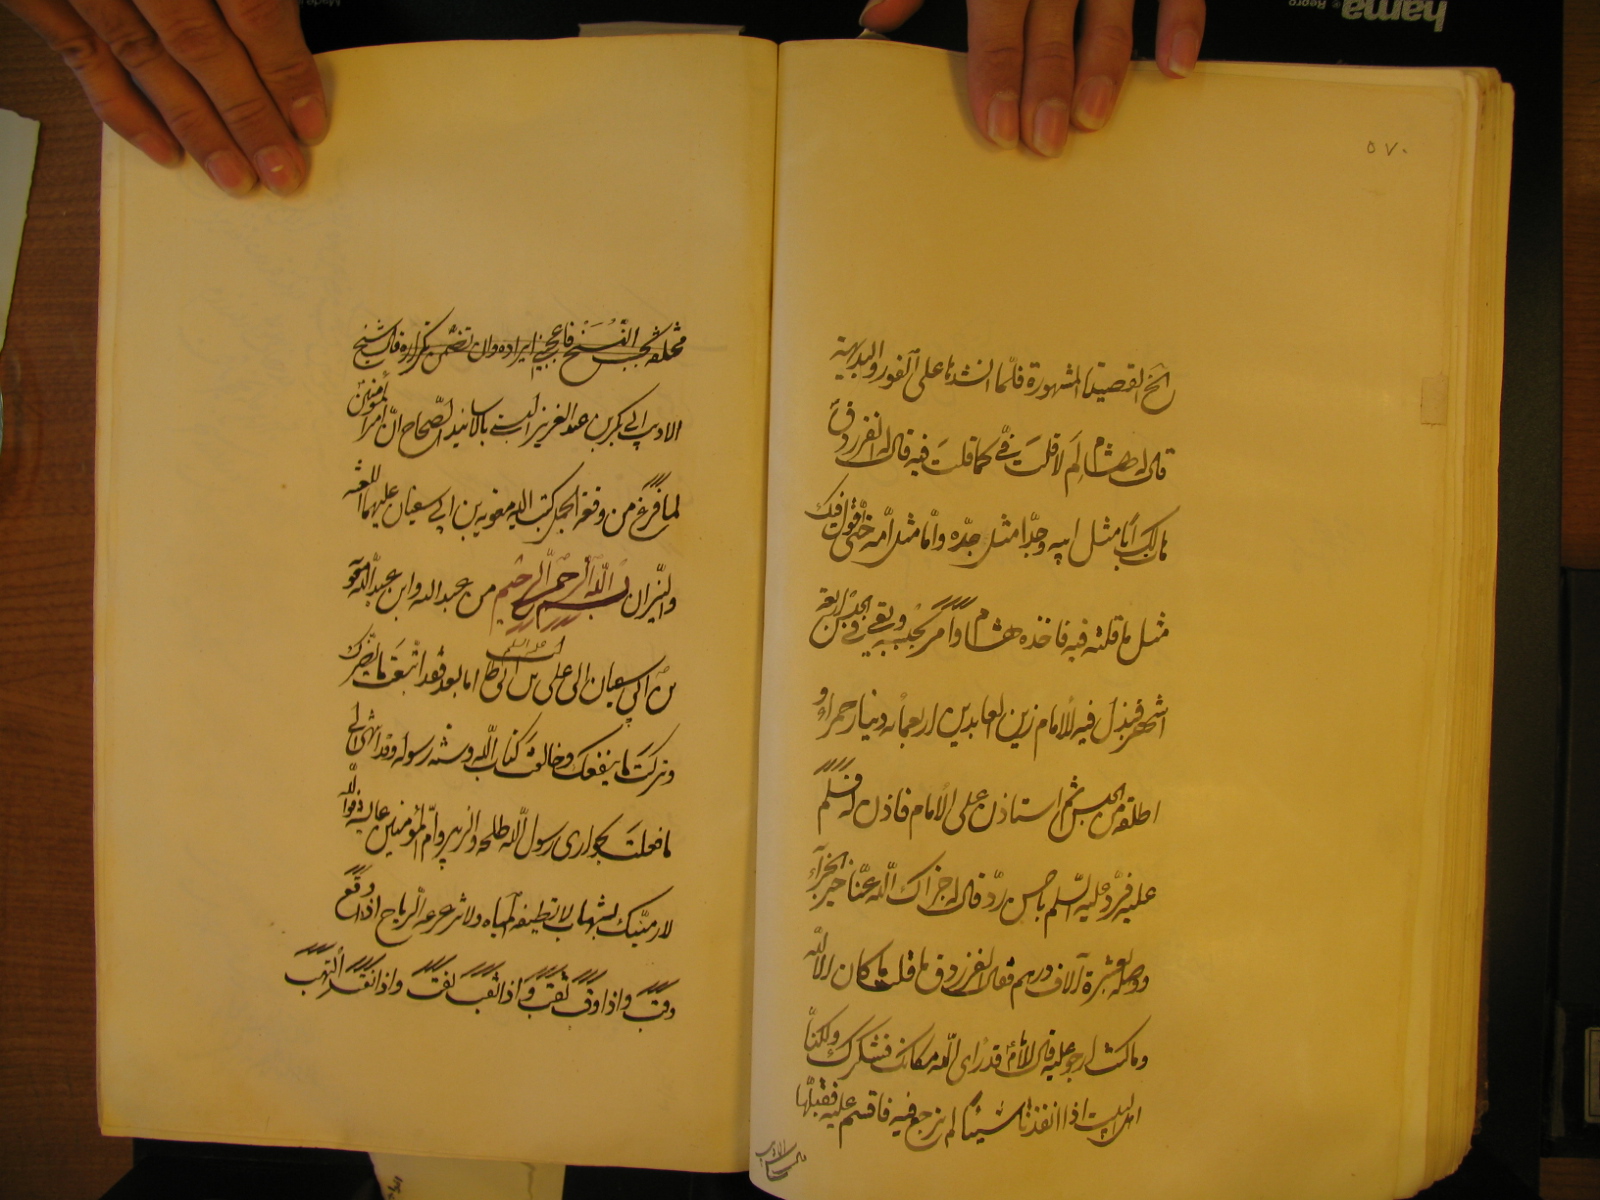 ۵۷۰
الخ القصيدة المشهورة فلما انشدها على الفور والبديهة
قال له هشام لم لا قلت فيّ كما قلت فيه قال له الفرزدق
مالك ابا مثل ابيه وجدّا مثل جدّه وامّا مثل امّه حتى اقول فيك
مثل ما قلته فيه فاخذه هشام وامر بحبسه وبقى في الحبس اربعة
اشهر فبذل فيه الامام زين العابدين اربعمأة دينار حمراء و
اطلقه من الحبس ثم استاذن على الامام فاذن له فسلم
عليه فردّ عليه السلم باحسن ردّ وقال له جزاك الله عنّا خير الجزاء
ووصله بعشرة آلاف درهم فقال الفرزدق ما قلت ما كان الا لله
وما كنت ارجو عليه قال الامام قد رأى الله مكانك فشكرك ولكنّا
اهل البيت اذا انفذنا شيئا لم نرجع فيه فاقسم عليه فقبلها
الاديب
فاعجبني ايراده وان تضمّن تكراره قال الشيخ
الاديب ابي بكر بن عبد العزيز البستي بالاسانيد الصّحاح انّ امير المؤمنين
لما فرغ من وقعة الجمل كتب اليه معوية بن ابي سفيان عليهما اللعنة
والنيران بسم الله الرحمن الرحيم من عبد الله وابن عبد الله معوية
بن ابي سفيان الى على بن ابي طالب عليه السلم اما بعد فقد اتبعت ما يضرك
وتركت ما ينفعك وخالفت كتاب الله وسنة رسوله وقد انتهى الىّ
ما فعلت بحوارى رسول الله طلحه والزبير وامّ المؤمنين عايشة فوالله
لارمينّك بشهاب لا تطفيه المياه ولا تزعزعه الرياح اذا وقع
وقب واذا وقب ثقب واذا ثقب نقب واذا نقب التهب
hama
Repro